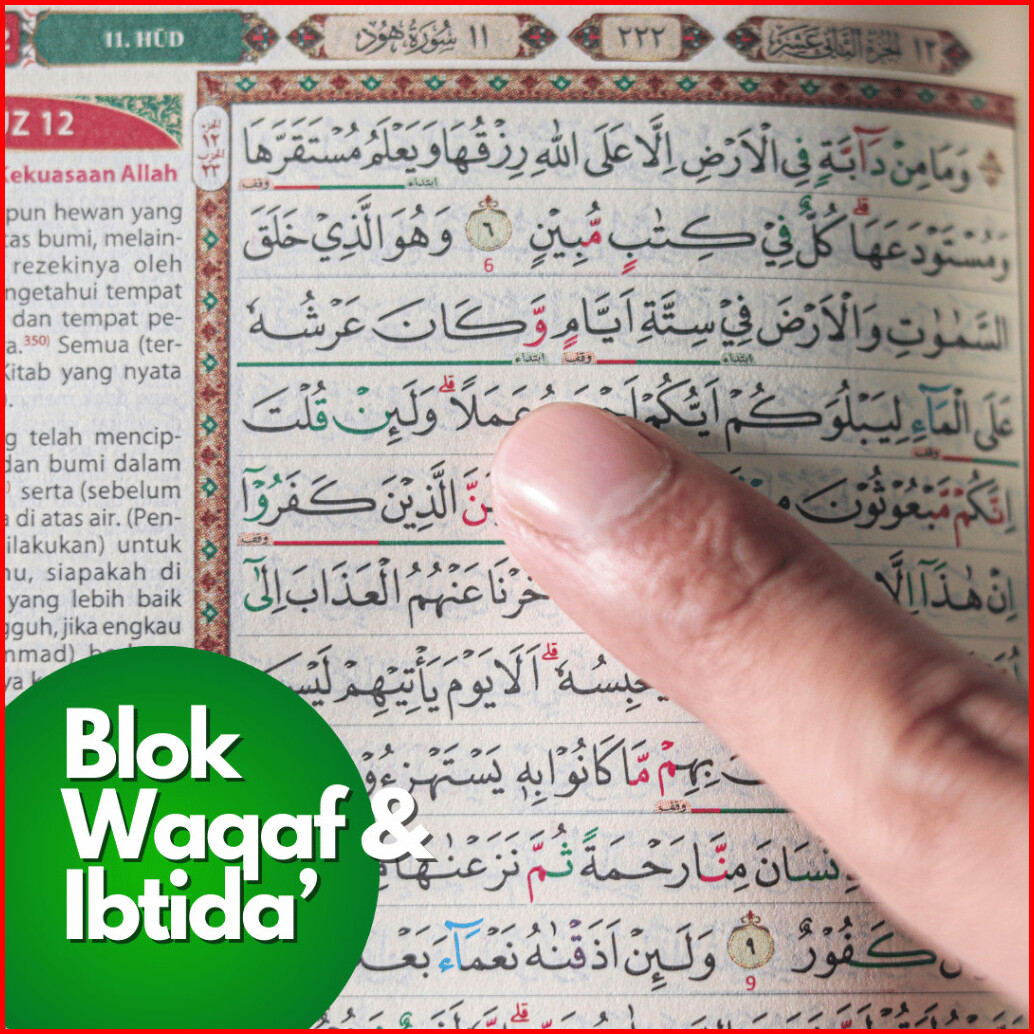 11. HŪD
١١ سُوْرَةُ هُوْد
٢٢٢
الجزء الثاني عشر ١٢
JZ 12
الجزء
١٢
الحزب
٢٣
Kekuasaan Allah
pun hewan yang
tas bumi, melain-
rezekinya oleh
ngetahui tempat
dan tempat pe-
a.³⁵⁰⁾ Semua (ter-
Kitab yang nyata
g telah mencip-
dan bumi dalam
serta (sebelum
a di atas air. (Pen-
ilakukan) untuk
mu, siapakah di
yang lebih baik
gguh, jika engkau
وَمَا مِنْ دَاۤبَّةٍ فِى الْاَرْضِ اِلَّا عَلَى اللّٰهِ رِزْقُهَا وَيَعْلَمُ مُسْتَقَرَّهَا
ابتداء وقف
وَمُسْتَوْدَعَهَا ۗ كُلٌّ فِيْ كِتٰبٍ مُّبِيْنٍ ٦ وَهُوَ الَّذِيْ خَلَقَ
6
السَّمٰوٰتِ وَالْاَرْضَ فِيْ سِتَّةِ اَيَّامٍ وَّكَانَ عَرْشُهٗ
ابتداء وقف ابتداء
عَلَى الْمَاۤءِ لِيَبْلُوَكُمْ اَيُّكُمْ عَمَلًا ۗ وَلَىِٕنْ قُلْتَ
وقف
اِنَّكُمْ مَّبْعُوْثُوْنَ الَّذِيْنَ كَفَرُوْٓا
وقف
اِنْ هٰذَآ عَنْهُمُ الْعَذَابَ اِلٰٓى
يَحْبِسُهٗ ۗ اَلَا يَوْمَ يَأْتِيْهِمْ لَيْسَ
بِهِمْ مَّا كَانُوْا بِهٖ يَسْتَهْزِءُوْ
وقف
مِنَّا رَحْمَةً ثُمَّ نَزَعْنٰهَا
كَفُوْرٌ ٩ وَلَىِٕنْ اَذَقْنٰهُ نَعْمَاۤءَ بَعْدَ
9
Blok
Waqaf &
Ibtida’